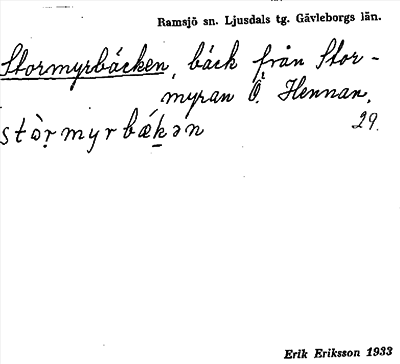 Ramsjö sn. Ljusdals tg. Gävleborgs län.
Stormyrbäcken, bäck från Stor-
myran Ö. Hennan.
stòṛmyrbǽḵən 29.
Erik Eriksson 1933